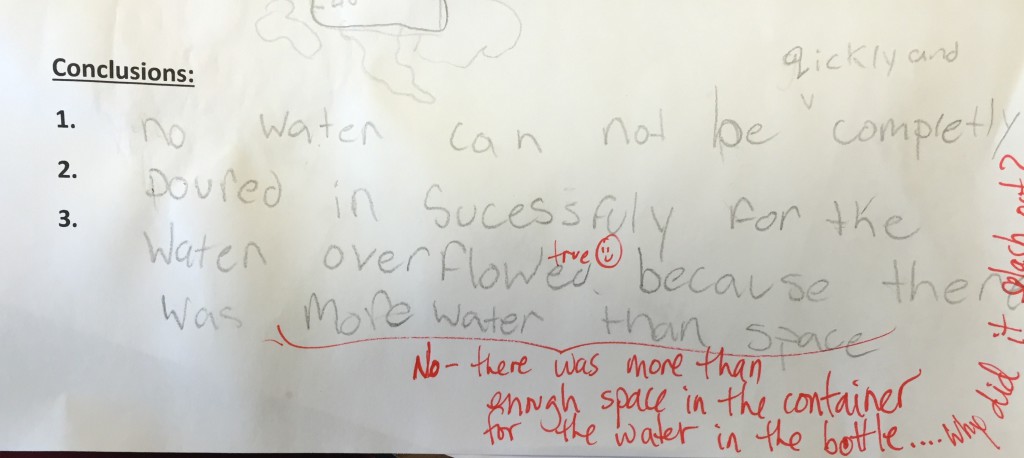 Conclusions:
qickly and
1. no water can not be completly
2. poured in sucessfuly for the
3. water overflowed because there
true
was more water than space
No - there was more than
enough space in the container
for the water in the bottle.... Why did it splash out?